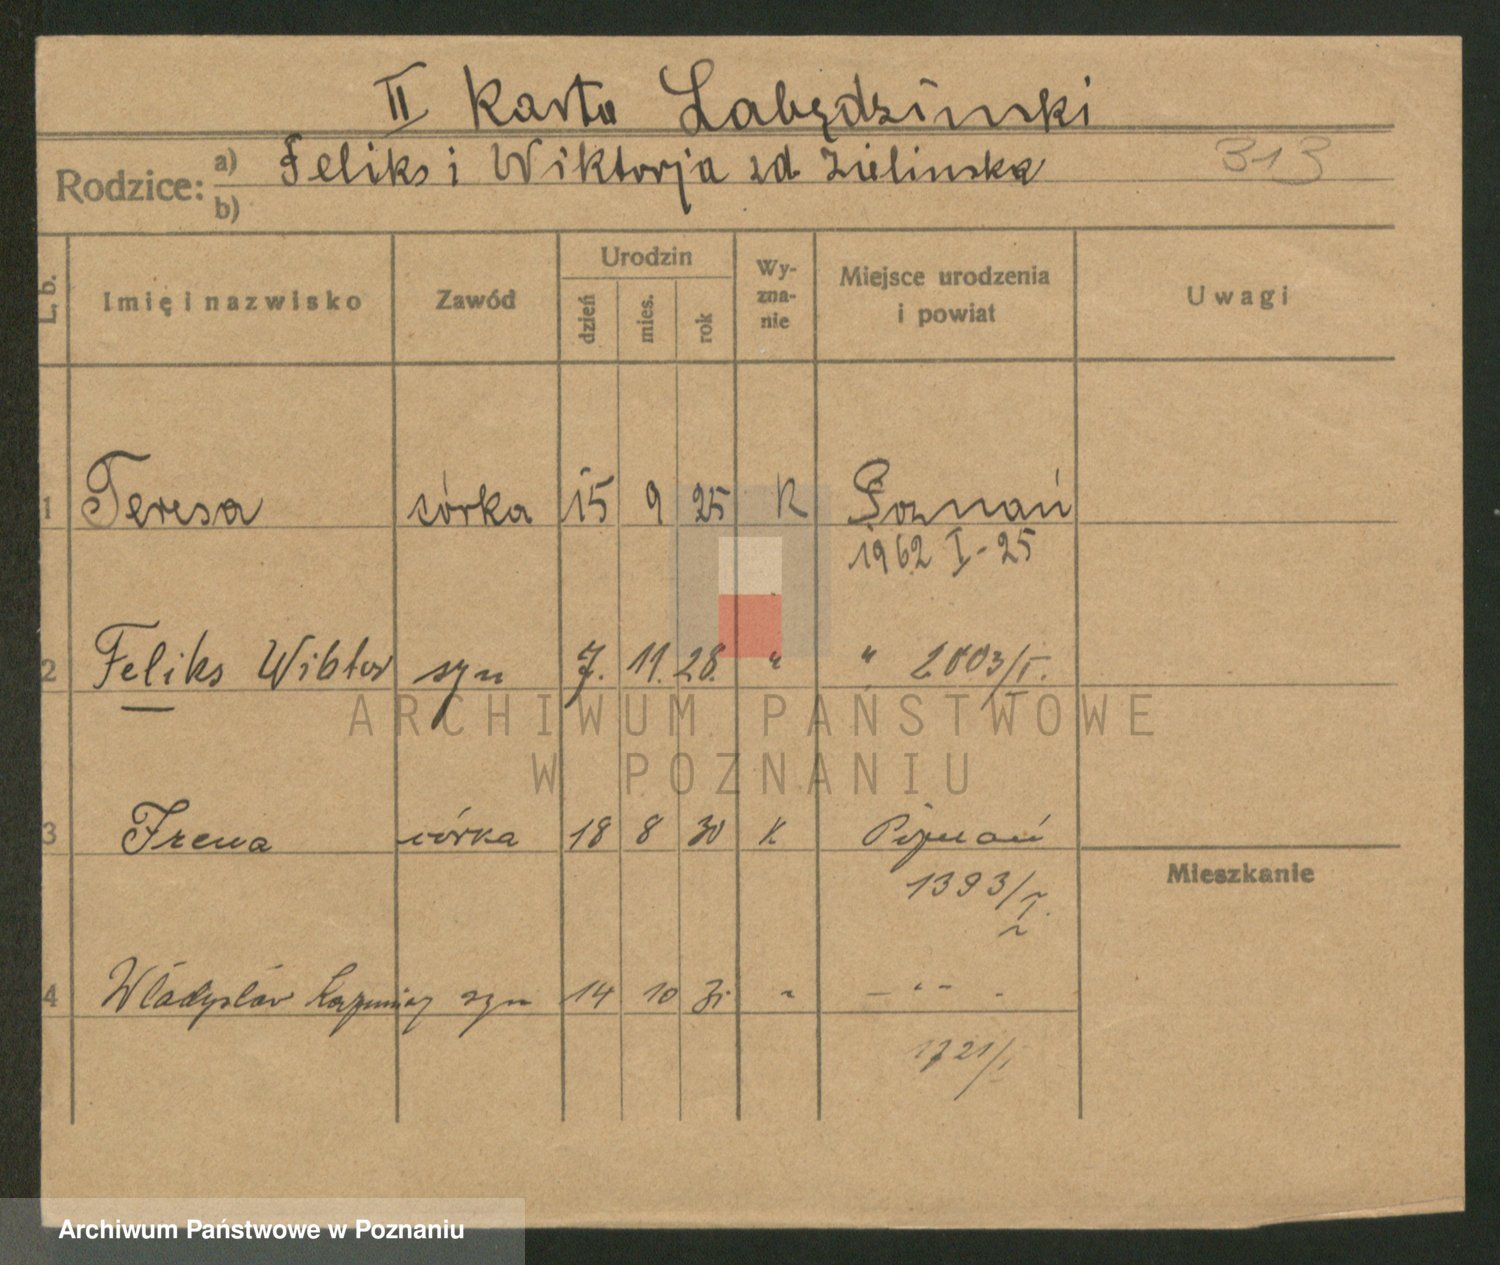 II Karta Łabędzinski
Rodzice: a) Feliks i Wiktorja zd. Zielinska 313
b)
L. b. Imię i nazwisko Zawód Urodzin dzień mies. rok Wy-zna-nie Miejsce urodzenia i powiat Uwagi
1 Teresa córka 15 9 25 K Poznań
1962 I - 25
2 Feliks Wiktor syn 7. 11. 28. " " 2003/I.
ARCHIWUM PAŃSTWOWE
W POZNANIU
3 Irena córka 18 8 30 K Poznań
Mieszkanie
1393/I.
4 Władysław Kazimierz syn 14 10 31 " - " -
1721/I
Archiwum Państwowe w Poznaniu